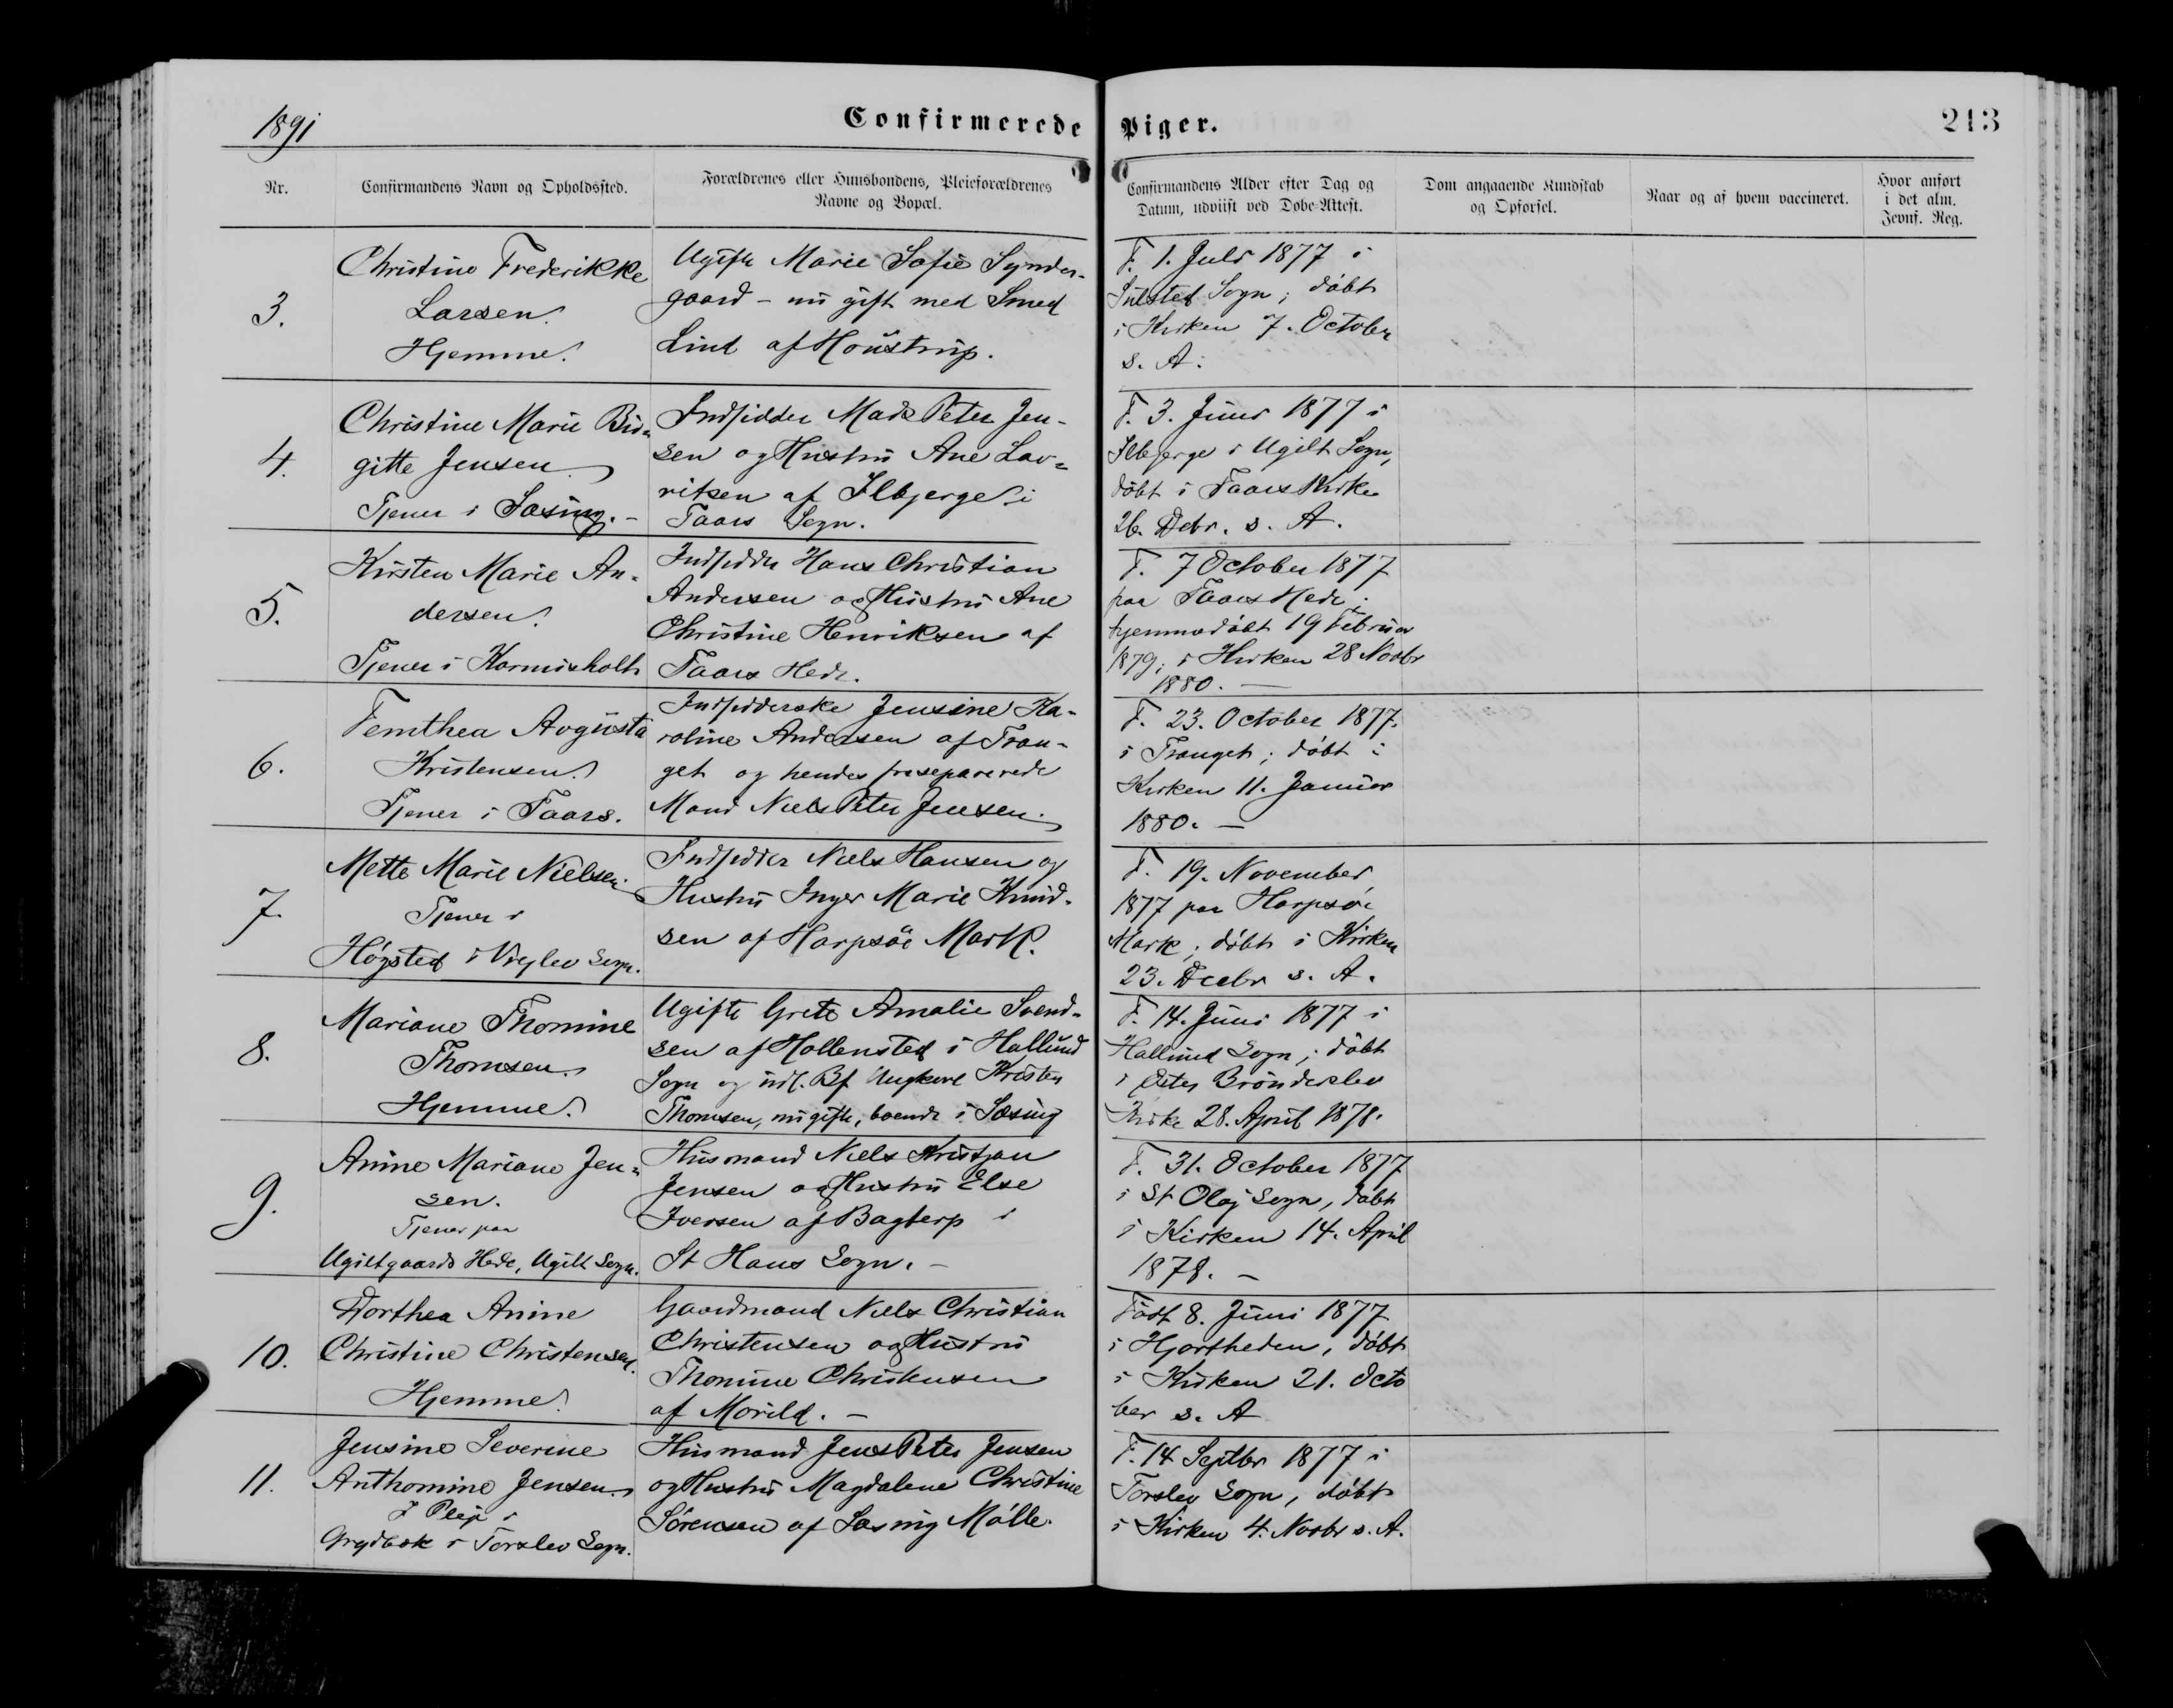 1891
Confirmerede Piger.
213
Nr.
Confirmandens Navn og Opholdssted.
Forældrenes eller Huusbondens, Pleieforældrenes
Navne og Bopæl.
Confirmandens Alder efter Dag og
Datum, udviist ved Døbe-Attest.
Dom angaaende Kundskab
og Opførsel.
Naar og af hvem vaccineret.
Hvor anført
i det alm.
Jevnf. Reg.
3.
Christine Frederikke
Larsen.
Hjemme.
Ugifte Marie Sofie Synder-
gaard - nu gift med Smed
Lind af Houstrup.
F. 1. Juli 1877 i
Sulsted Sogn; døbt
i Kirken 7. October
s. A.
4.
Christine Marie Bir-
gitte Jensen
Tjener i Sæsing. -
Indsidder Mads Peter Jen-
sen og Hustru Ane Lav-
ritsen af Ilbjerge i
Taars Sogn.
F. 3. Juni 1877 i
Ilbjerge i Ugilt Sogn,
døbt i Taars Kirke
26. Debr. s. A.
5.
Kirsten Marie An-
dersen.
Tjener i Kornisholt
Indsidder Hans Christian
Andersen og Hustru Ane
Christine Henriksen af
Taars Hede.
F. 7 October 1877
paa Taars Hede;
hjemmedøbt 19 Februar
1879; i Kirken 28 Novbr
1880. -
6.
Temthea Avgusta
Kristensen.
Tjener i Taars.
Indsidderske Jensine Ka-
roline Andersen af Tran-
get og hendes fraseparerede
Mand Niels Peter Jensen.
F. 23. October 1877.
i Tranget; døbt i
Kirken 11. Januar
1880. -
7.
Mette Marie Nielsen.
Tjener i
Høgsted i Vrejlev Sogn.
Indsidder Niels Hansen og
Hustru Inger Marie Knud-
sen af Harpsøe Mark.
F. 19. November
1877 paa Harpsøe
Mark; døbt i Kirken
23. Decbr s. A.
8.
Mariane Thomine
Thomsen.
Hjemme.
Ugifte Grete Amalie Svend-
sen af Hollensted i Hallund
Sogn og udl. Bf. Ungkarl Kristen
Thomsen, nu gifte, boende i Sæsing
F. 14. Juni 1877 i
Hallund Sogn; døbt
i Øster Brønderslev
Kirke 28. April 1878.
9.
Anine Mariane Jen-
sen.
Tjener paa
Ugiltgaards Hede, Ugilt Sogn.
Husmand Niels Kristjan
Jensen og Hustru Else
Iversen af Bagterp i
St Hans Sogn. -
F. 31. October 1877
i St Olaj Sogn, døbt
i Kirken 14. April
1878. -
10.
Dorthea Anine
Christine Christensen.
Hjemme.
Gaardmand Niels Christian
Christensen og Hustru
Thomine Christensen
af Morild. -
Født 8. Juni 1877
i Hjortheden, døbt
i Kirken 21. Octo
ber s. A
11.
Jensine Severine
Anthomine Jensen.
I Pleje i
Grydbæk i Torslev Sogn.
Husmand Jens Peter Jensen
og Hustru Magdalene Christine
Sørensen af Sæsing Mølle.
F. 14 Septbr 1877 i
Torslev Sogn, døbt
i Kirken 4. Novbr s. A.